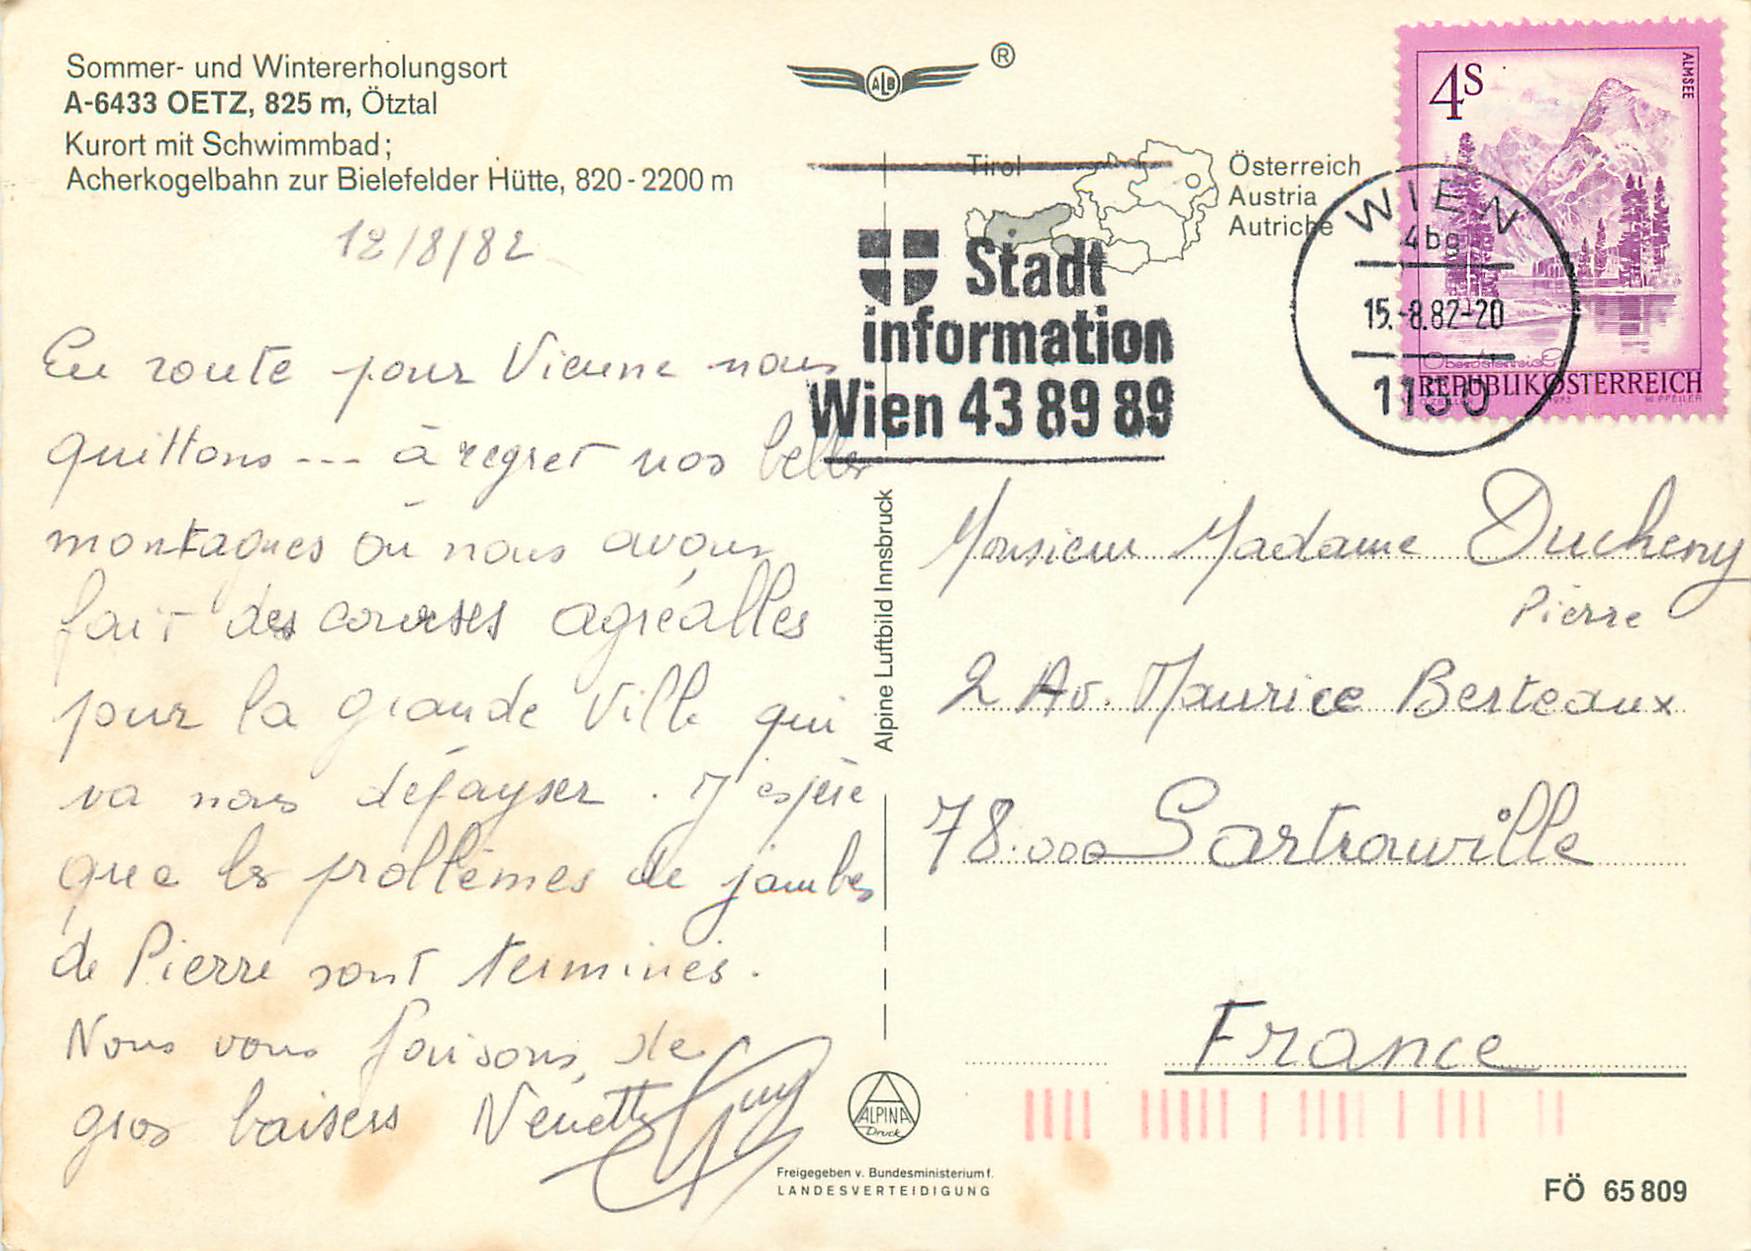 Sommer- und Wintererholungsort
A-6433 OETZ, 825 m, Ötztal
Kurort mit Schwimmbad;
Acherkogelbahn zur Bielefelder Hütte, 820-2200 m
12/8/82
En route pour Vienne nous
quittons --- à regret nos belles
montagnes où nous avons
fait des courses agréables
pour la grande Ville qui
va nous dépayser. J'espère
que les problèmes de jambes
de Pierre sont terminés.
Nous vous faisons de
gros baisers Nénette Guy
ALB
®
Tirol
Österreich
Austria
Autriche
Stadt
information
Wien 43 89 89
4S
ALMSEE
Oberösterreich
REPUBLIK ÖSTERREICH
1973
W. PFEILER
WIEN
4bg
15.-8.82-20
1150
Alpine Luftbild Innsbruck
Monsieur Madame Ducheny
Pierre
2 Av. Maurice Berteaux
78.000 Sartrouville
France
ALPINA
Druck
Freigegeben v. Bundesministerium f.
LANDESVERTEIDIGUNG
FÖ 65 809